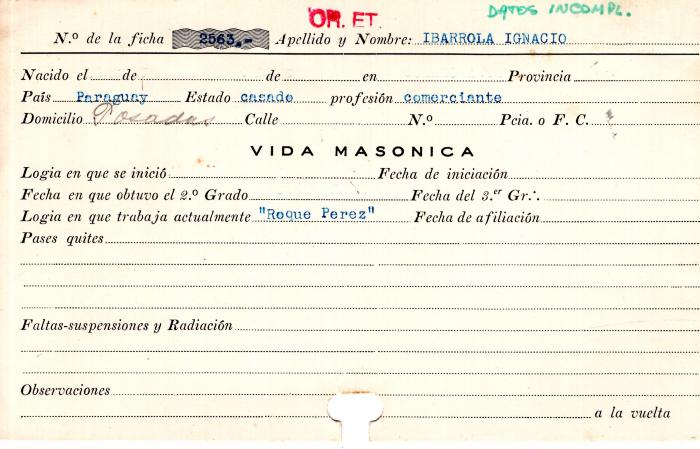 OR. ET. DATOS INCOMPL.
N.º de la ficha 2563.- Apellido y Nombre: IBARROLA IGNACIO
Nacido el de de en Provincia
País Paraguay Estado casado profesión comerciante
Domicilio Posadas Calle N.º Pcia. o F. C.
VIDA MASONICA
Logia en que se inició Fecha de iniciación
Fecha en que obtuvo el 2.º Grado Fecha del 3.er Gr∴
Logia en que trabaja actualmente "Roque Perez" Fecha de afiliación
Pases quites
Faltas-suspensiones y Radiación
Observaciones
a la vuelta